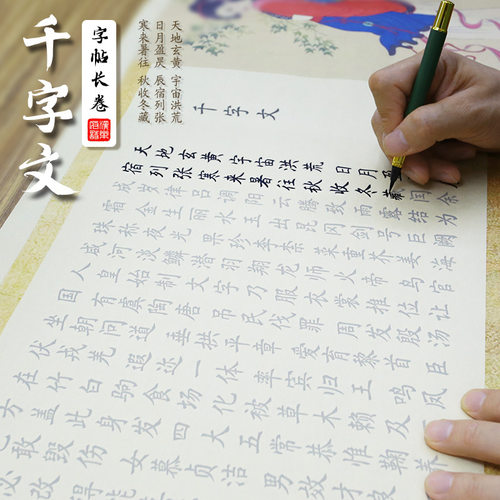 千字文
字帖长卷
天地玄黄 宇宙洪荒
日月盈昃 辰宿列张
寒来暑往 秋收冬藏
千字文
天地玄黄宇宙洪荒日月
宿列张寒来暑往秋收冬藏闰余
成岁律吕调阳云腾致雨露结为
霜金生丽水玉出昆冈剑号巨阙
珠称夜光果珍李柰菜重芥姜海
咸河淡鳞潜羽翔龙师火帝鸟官
人皇始制文字乃服衣裳推位让
国有虞陶唐吊民伐罪周发殷汤
坐朝问道垂拱平章爱育黎首臣
伏戎羌遐迩一体率宾归王鸣凤
在竹白驹食场化被草木赖及
方盖此身发四大五常恭惟鞠养
敢毁伤女慕贞洁男效才
必改得能